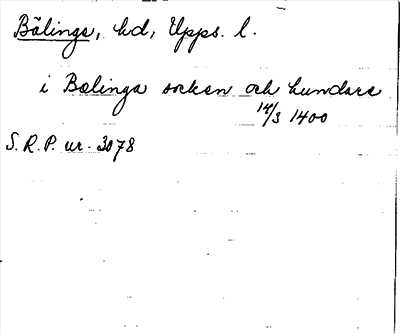 Bälinge, hd, Upps. l.
i Bælinga socken och hundare
14/3 1400
S.R.P. nr. 3078